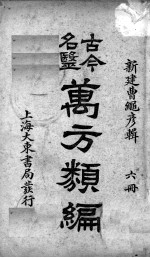 新建曹繩彦輯 六冊
古今
名醫
萬方類編
上海大東書局發行